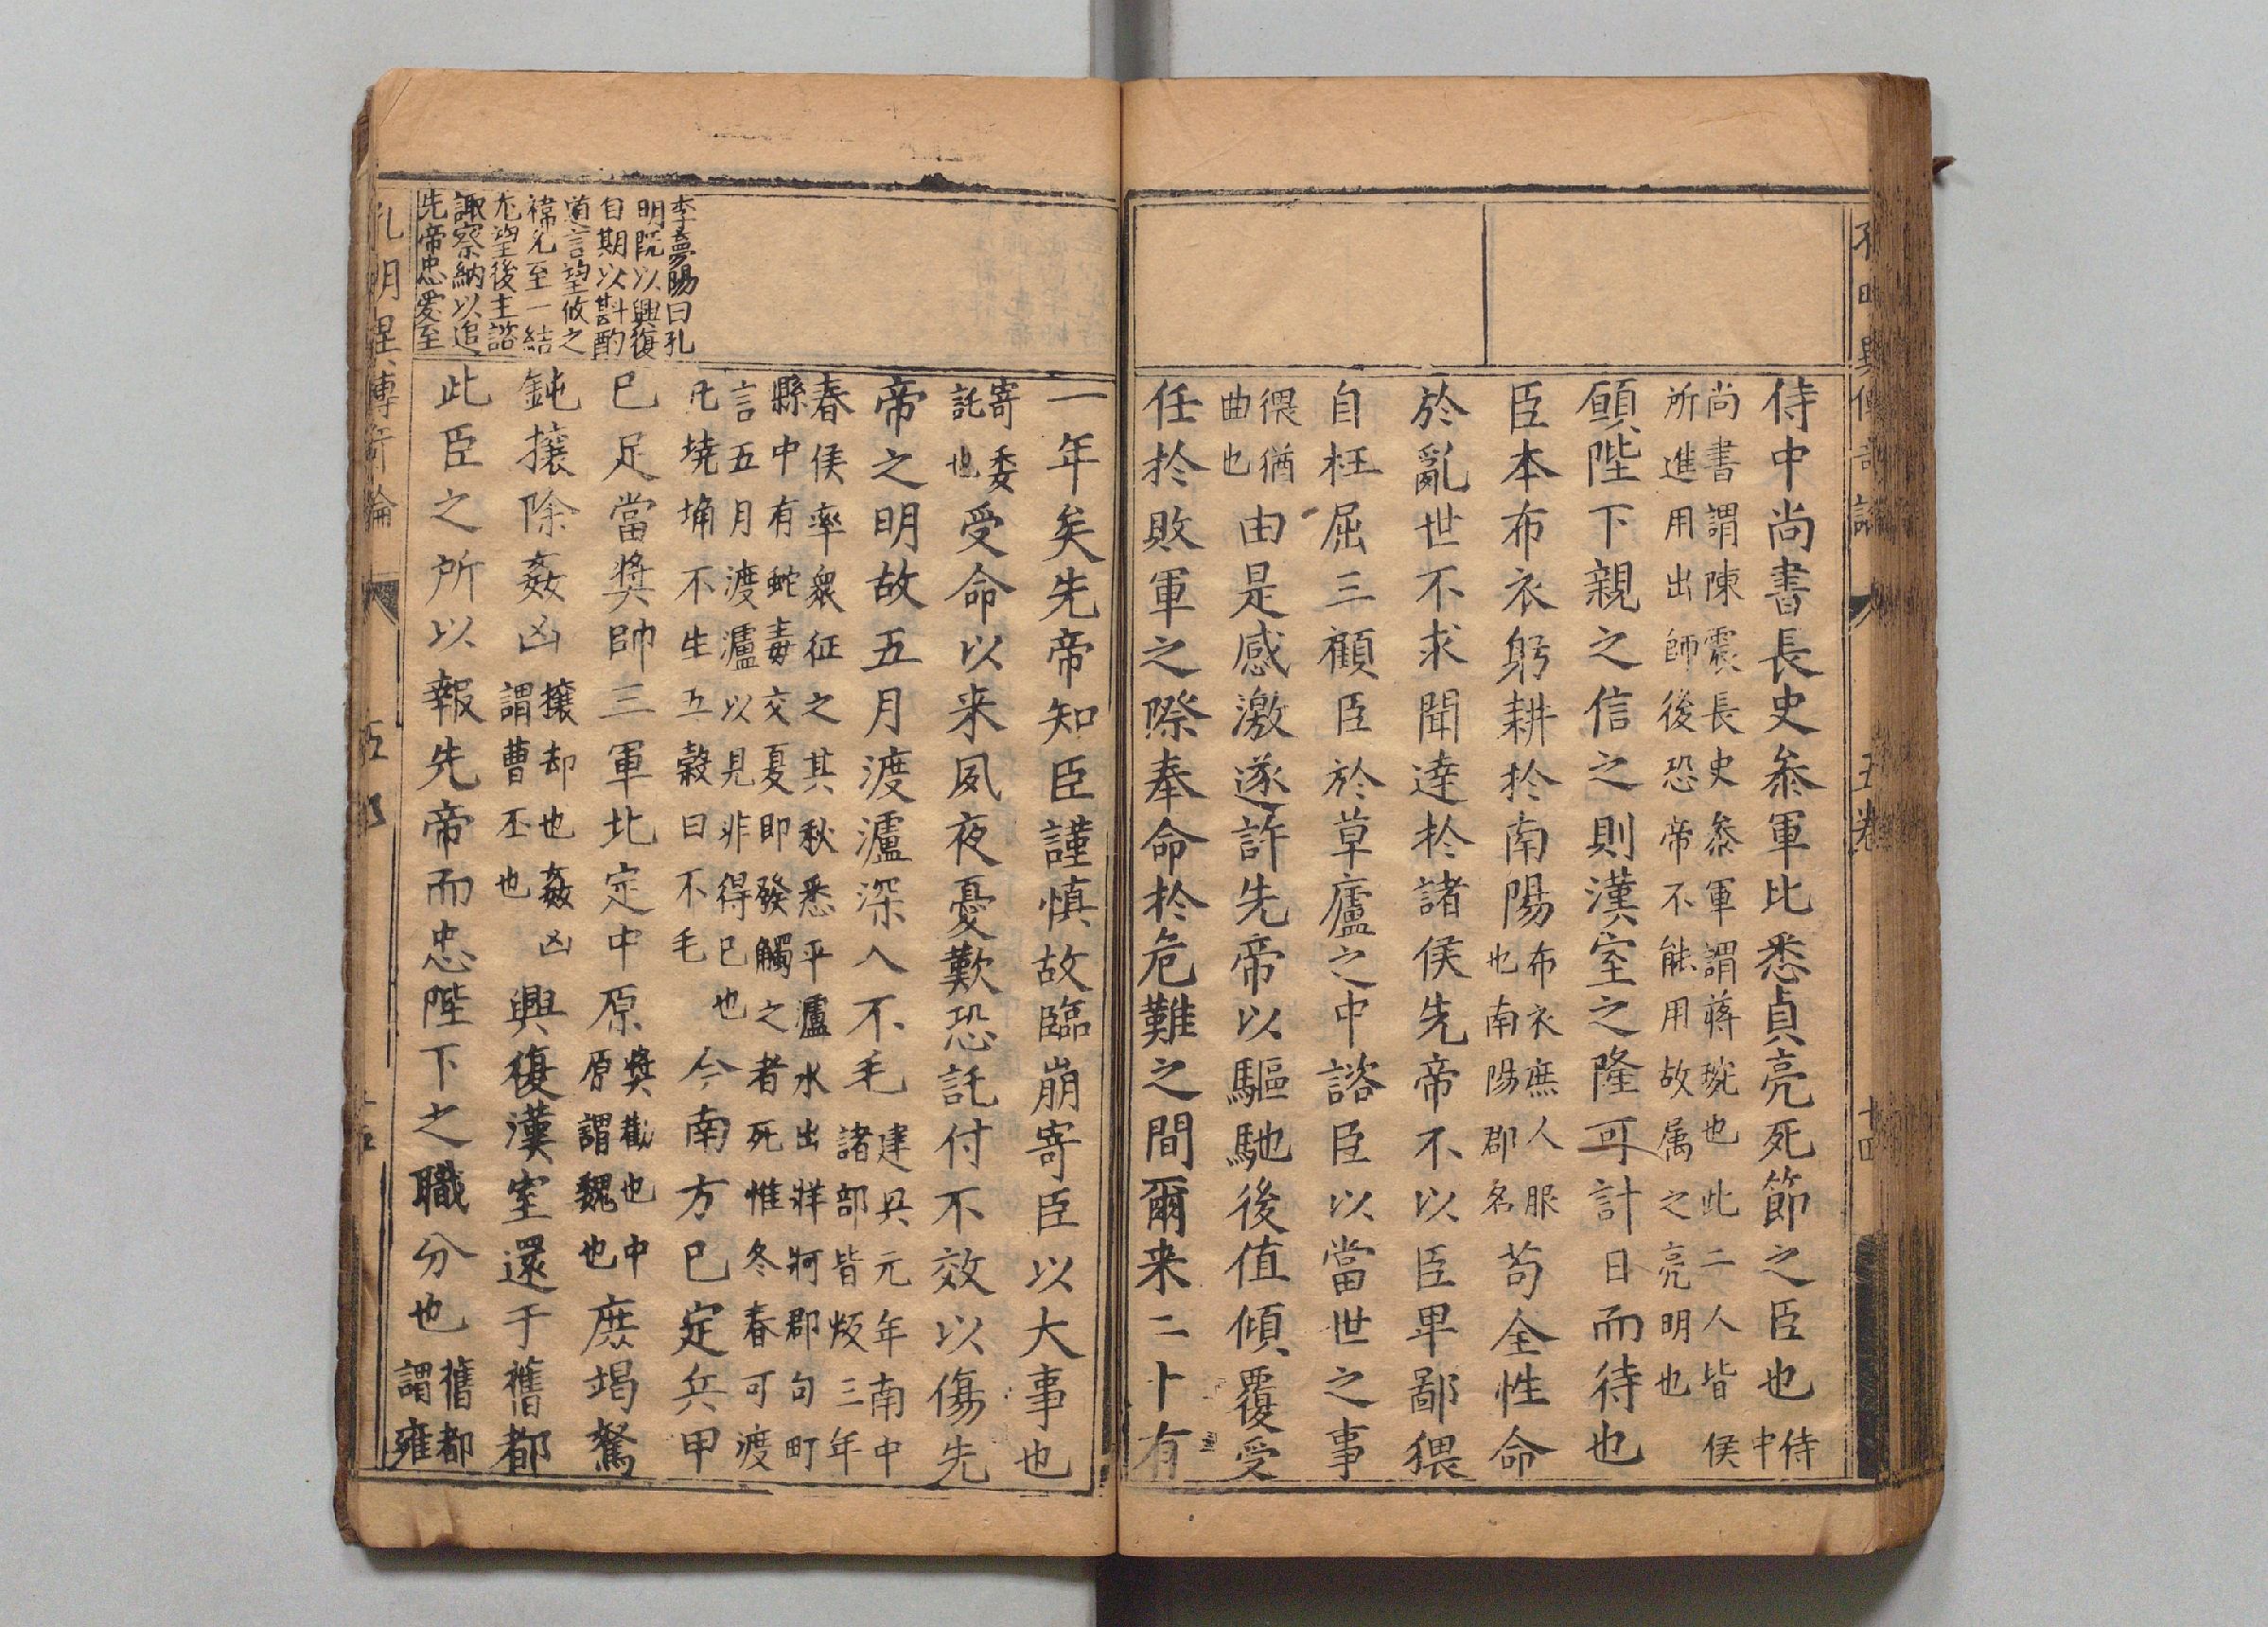 侍中尚書長史叅軍比悉貞亮死節之臣也侍
中
尚書謂陳震長史叅軍謂蔣琬也此二人皆侯
所進用出師後恐帝不能用故属之亮明也
願陛下親之信之則漢室之隆可計日而待也
臣本布衣躬耕扵南陽布衣庶人服也南陽郡名苟全性命
於亂世不求聞達扵諸侯先帝不以臣卑鄙猥
自枉屈三顧臣於草廬之中諮臣以當世之事
猥猶曲也由是感激遂許先帝以驅馳後值傾覆受
任扵敗軍之際奉命扵危難之間爾来二十有
李夢陽曰孔
明既以興復
自期以斟酌
道言望攸之
禕允至一結
尤望後主諮
諏察納以追
先帝忠愛至
一年矣先帝知臣謹慎故臨崩寄臣以大事也
寄委託也受命以来夙夜憂歎恐託付不效以傷先
帝之明故五月渡瀘深入不毛建興元年南中諸部皆叛三年
春侯率衆征之其秋悉平瀘水出牂牁郡句町
縣中有蛇毒交夏即發觸之者死惟冬春可渡
言五月渡瀘以見非得已也
凡墝埆不生五穀曰不毛今南方已定兵甲
已足當奬帥三軍北定中原奬勸也中原謂魏也庶竭駑
鈍攘除姦凶攘却也姦凶謂曹丕也興復漢室還于舊都
此臣之所以報先帝而忠陛下之職分也舊都謂雍
孔明